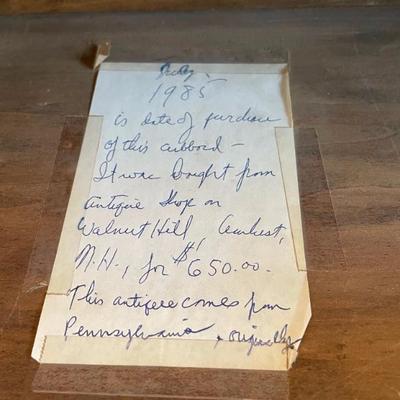 July -
1985
is date of purchase
of this cubbord -
It was bought from
antique shop on
Walnut Hill Amherst,
N.H., for $650.00.
This antique comes from
Pennsylvania, originally